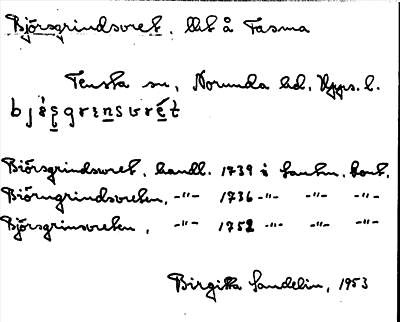 Björsgrindsvret, likt å Tasma
Tensta sn, Norunda hd, Upps. l.
Biörsgrindsvret, handl. 1739 i Lantm. kont.
Biörngrindsvreten, -"- 1736 -"- -"- -"-
Björsgrinsvreten, -"- 1752 -"- -"- -"-
Birgitta Sandelin, 1953